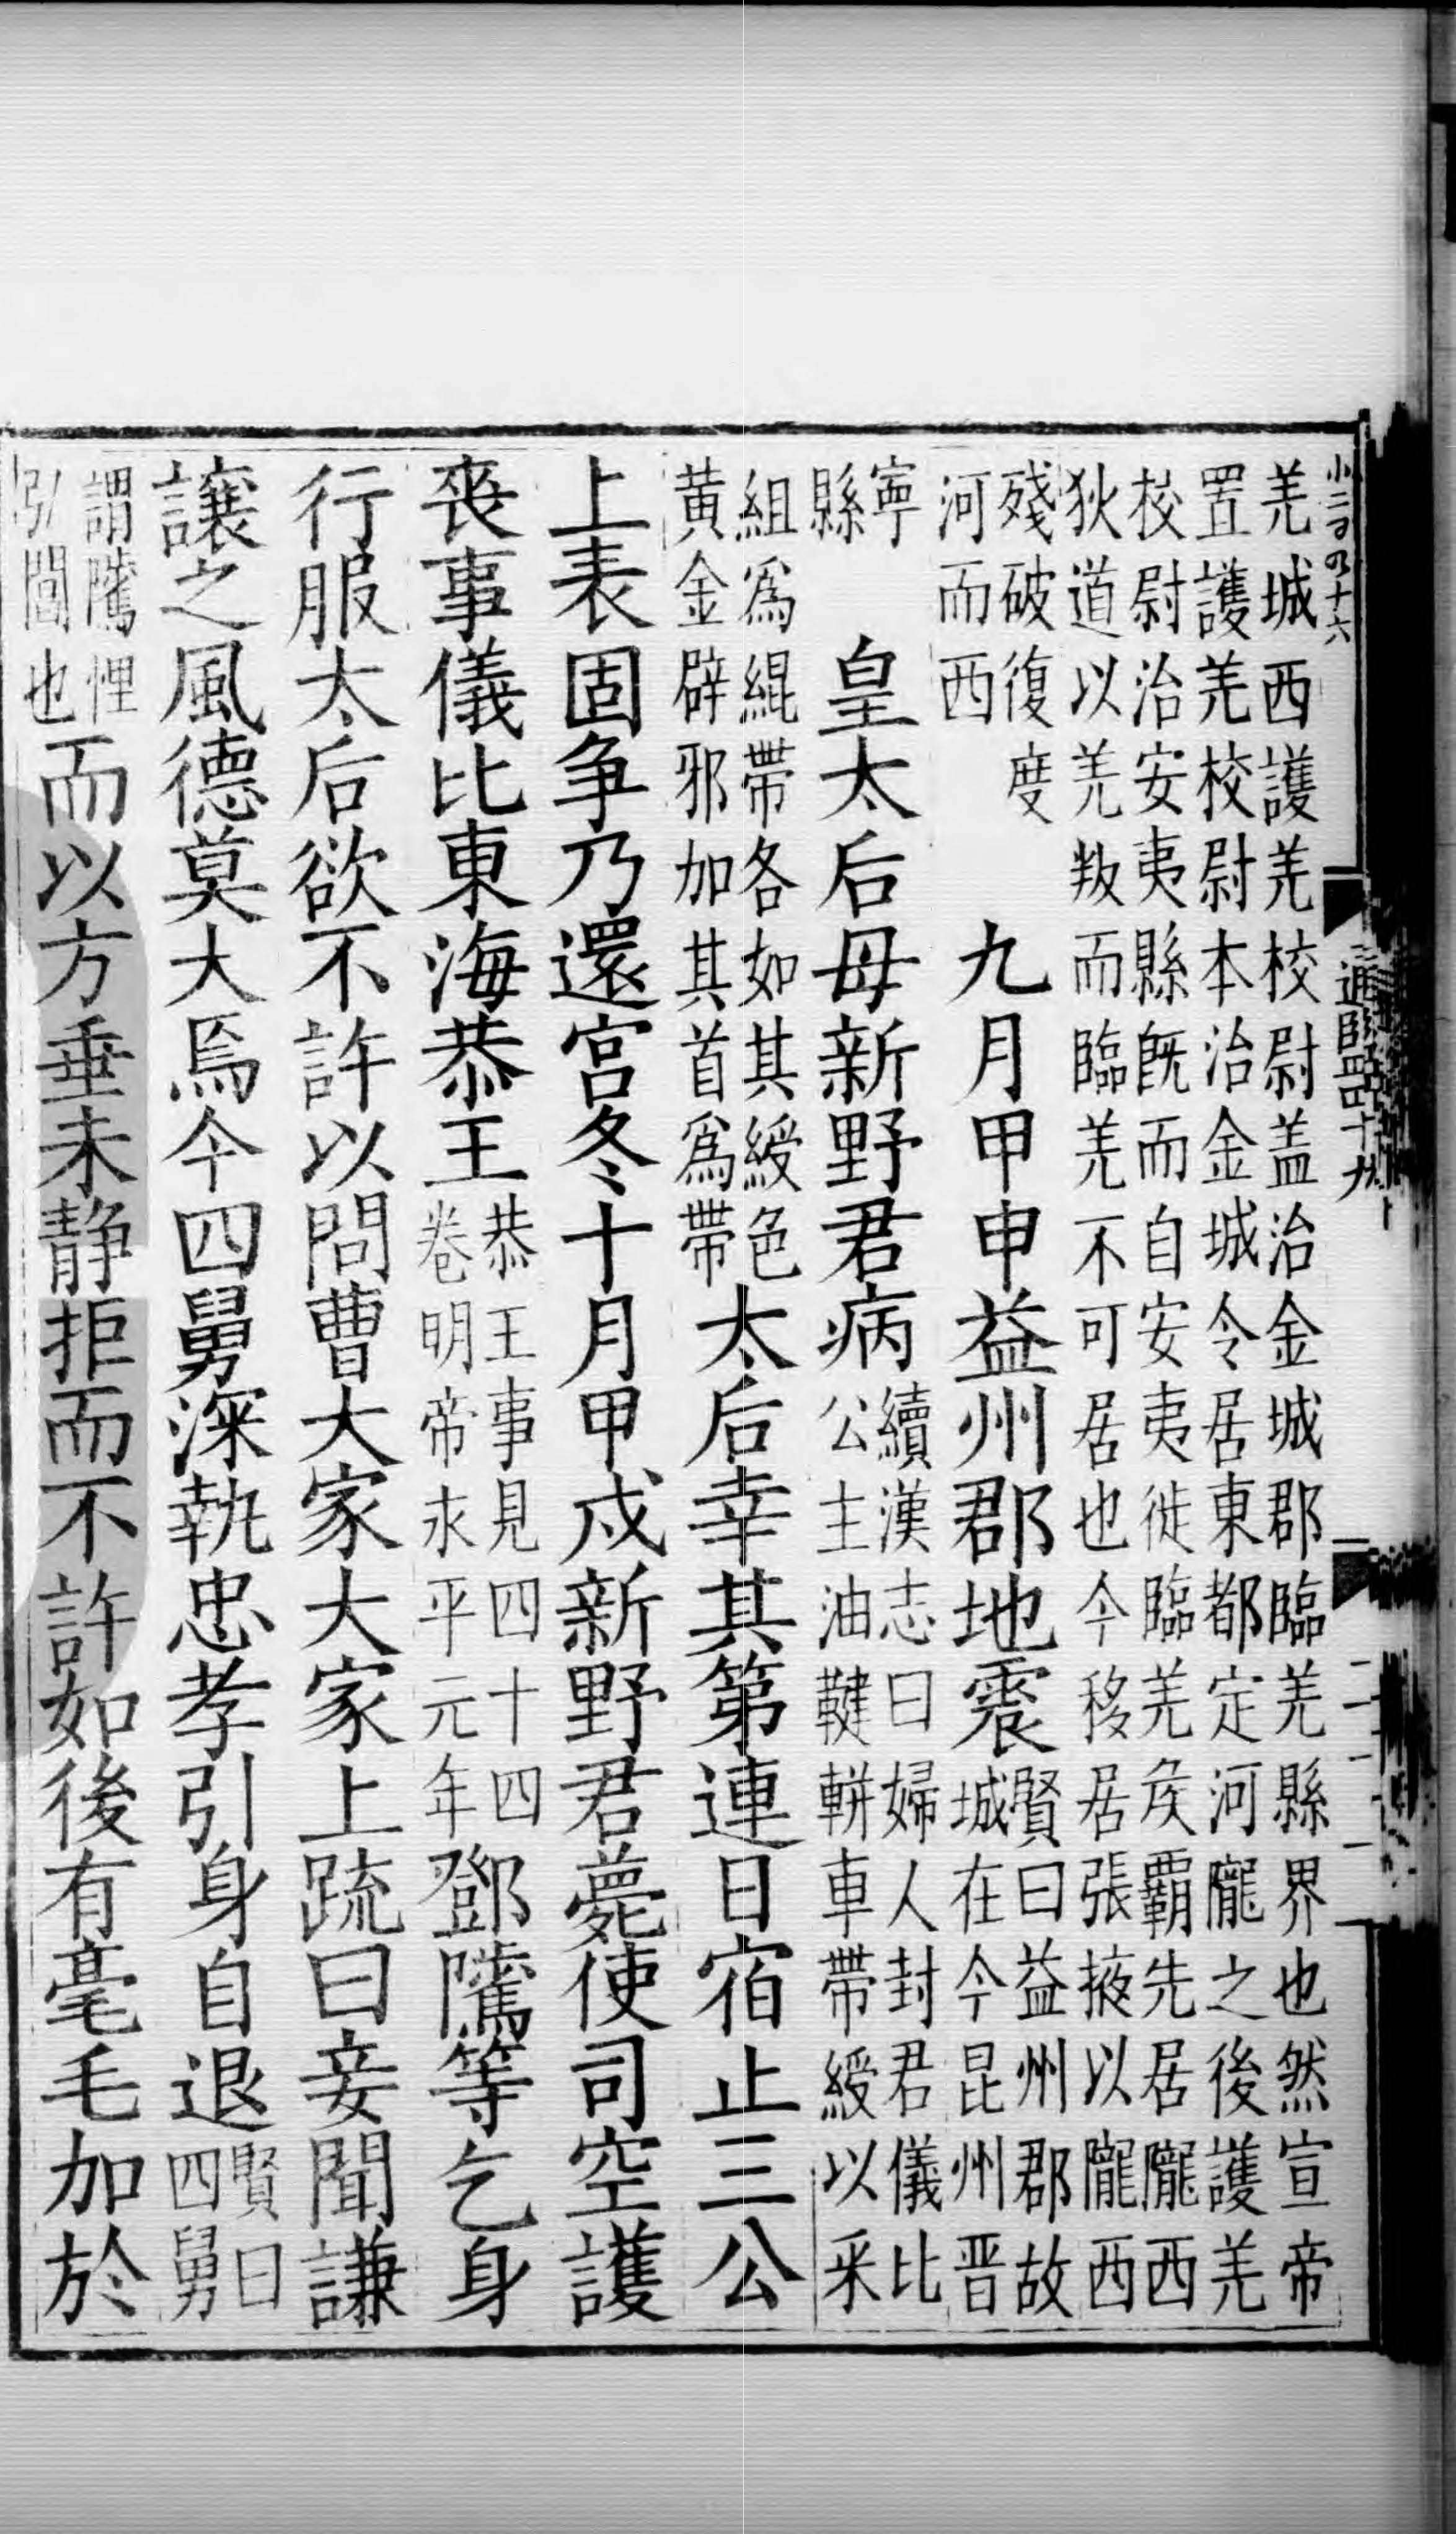 小二百四十六
羌城西護羌校尉盖治金城郡臨羌縣界也然宣帝
置護羌校尉本治金城令居東都定河隴之後護羌
校尉治安夷縣旣而自安夷徙臨羌矦覇先居隴西
狄道以羌叛而臨羌不可居也今移居張掖以隴西
殘破復度
河而西
九月甲申益州郡地震
賢曰益州郡故
城在今昆州晋
寧
縣
皇太后母新野君病
續漢志曰婦人封君儀比
公主油軿軿車帶綬以采
組爲緄帶各如其綬色
黄金辟邪加其首爲帶
太后幸其第連日宿止三公
上表固争乃還宮冬十月甲戌新野君薨使司空護
喪事儀比東海恭王
恭王事見四十四
卷明帝永平元年
鄧騭等乞身
行服太后欲不許以問曹大家大家上疏曰妾聞謙
讓之風德莫大焉今四舅深執忠孝引身自退
賢曰
四舅
謂騭悝
弘閶也
而以方垂未静拒而不許如後有毫毛加於
通鑑四十九